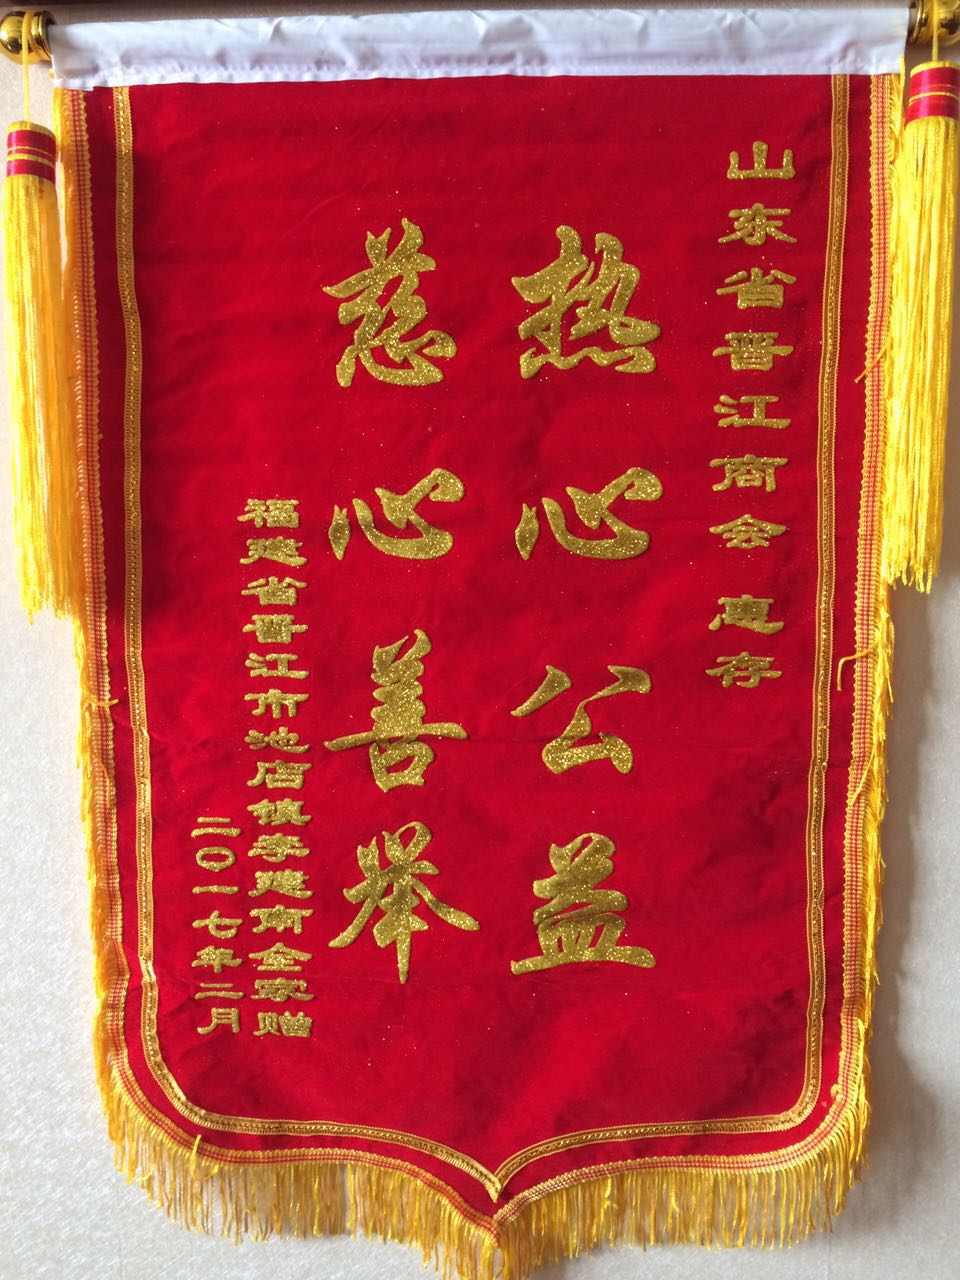 山东省晋江商会 惠存
热心公益
慈心善举
福建省晋江市池店镇李建南全家赠
二〇一七年二月